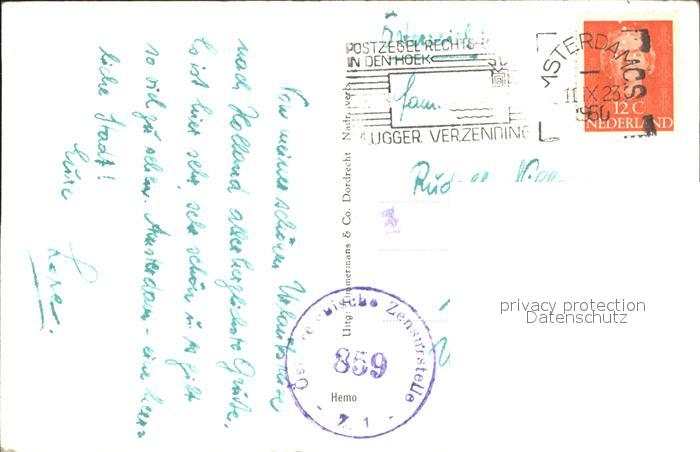 Von meiner schönen Urlaubsreise
nach Holland allerherzlichste Grüße.
Es ist hier sehr, sehr schön u. es gibt
so viel zu sehen. Amsterdam - eine herr=
liche Stadt!
Eure
Österreich
POSTZEGEL RECHTS
IN DEN HOEK
VLUGGER VERZENDING
AMSTERDAM CS
11 IX 23
1950
12 C
NEDERLAND
Fam.
Uitg. Zimmermans & Co. Dordrecht Nadr. verb.
Österreichische Zensurstelle
859
- Z 1 -
Hemo
privacy protection
Datenschutz